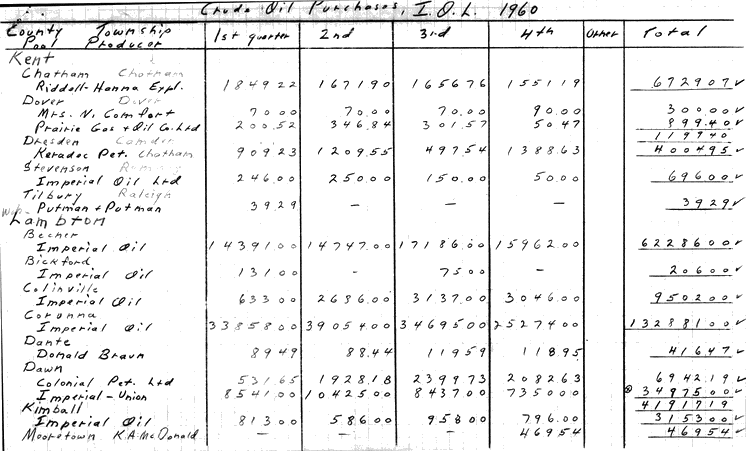 Crude Oil Purchases, I.O.L. 1960
County Township 1st quarter 2nd 3rd 4th Other Total
Pool Producer
Kent
Chatham Chatham
Riddell-Hanna Expl. 1849 22 1671 90 1656 76 1551 19 6729 07 ✓
Dover Dover
Mrs. N. Comfort 70 00 70.00 70.00 90.00 300.00 ✓
Prairie Gas & Oil Co. Ltd 200.52 346.84 301.57 50 47 899.40 ✓
1199 40
Dresden Camden
Keradec Pet. Chatham 909 23 1209.55 497 54 1388.63 4004 95 ✓
Stevenson Romney
Imperial Oil Ltd 246.00 250.00 150.00 50.00 696 00 ✓
Tilbury Raleigh
Putman & Putman 39 29 – – – 39 29 ✓
Lambton
Becher
Imperial Oil 14391 00 14747.00 17186.00 15962.00 62286 00 ✓
Bickford
Imperial Oil 131 00 - 75 00 - 206 00 ✓
Colinville
Imperial Oil 633 00 2686.00 3137.00 3046.00 9502 00 ✓
Corunna
Imperial Oil 33858 00 39054 00 34695 00 25274 00 132881 00 ✓
Dante
Donald Braun 89 49 88.44 119 59 118.95 416 47 ✓
Dawn
Colonial Pet. Ltd 531.65 1928.18 2399 73 2082.63 6942.19 ✓
Imperial-Union 8541 00 10425 00 8437 00 7350 00 34975 00 ✓
41917 19
Kimball
Imperial Oil 813 00 586.00 958 00 796.00 3153 00 ✓
Mooretown K.A. McDonald – – – 469 54 469 54 ✓